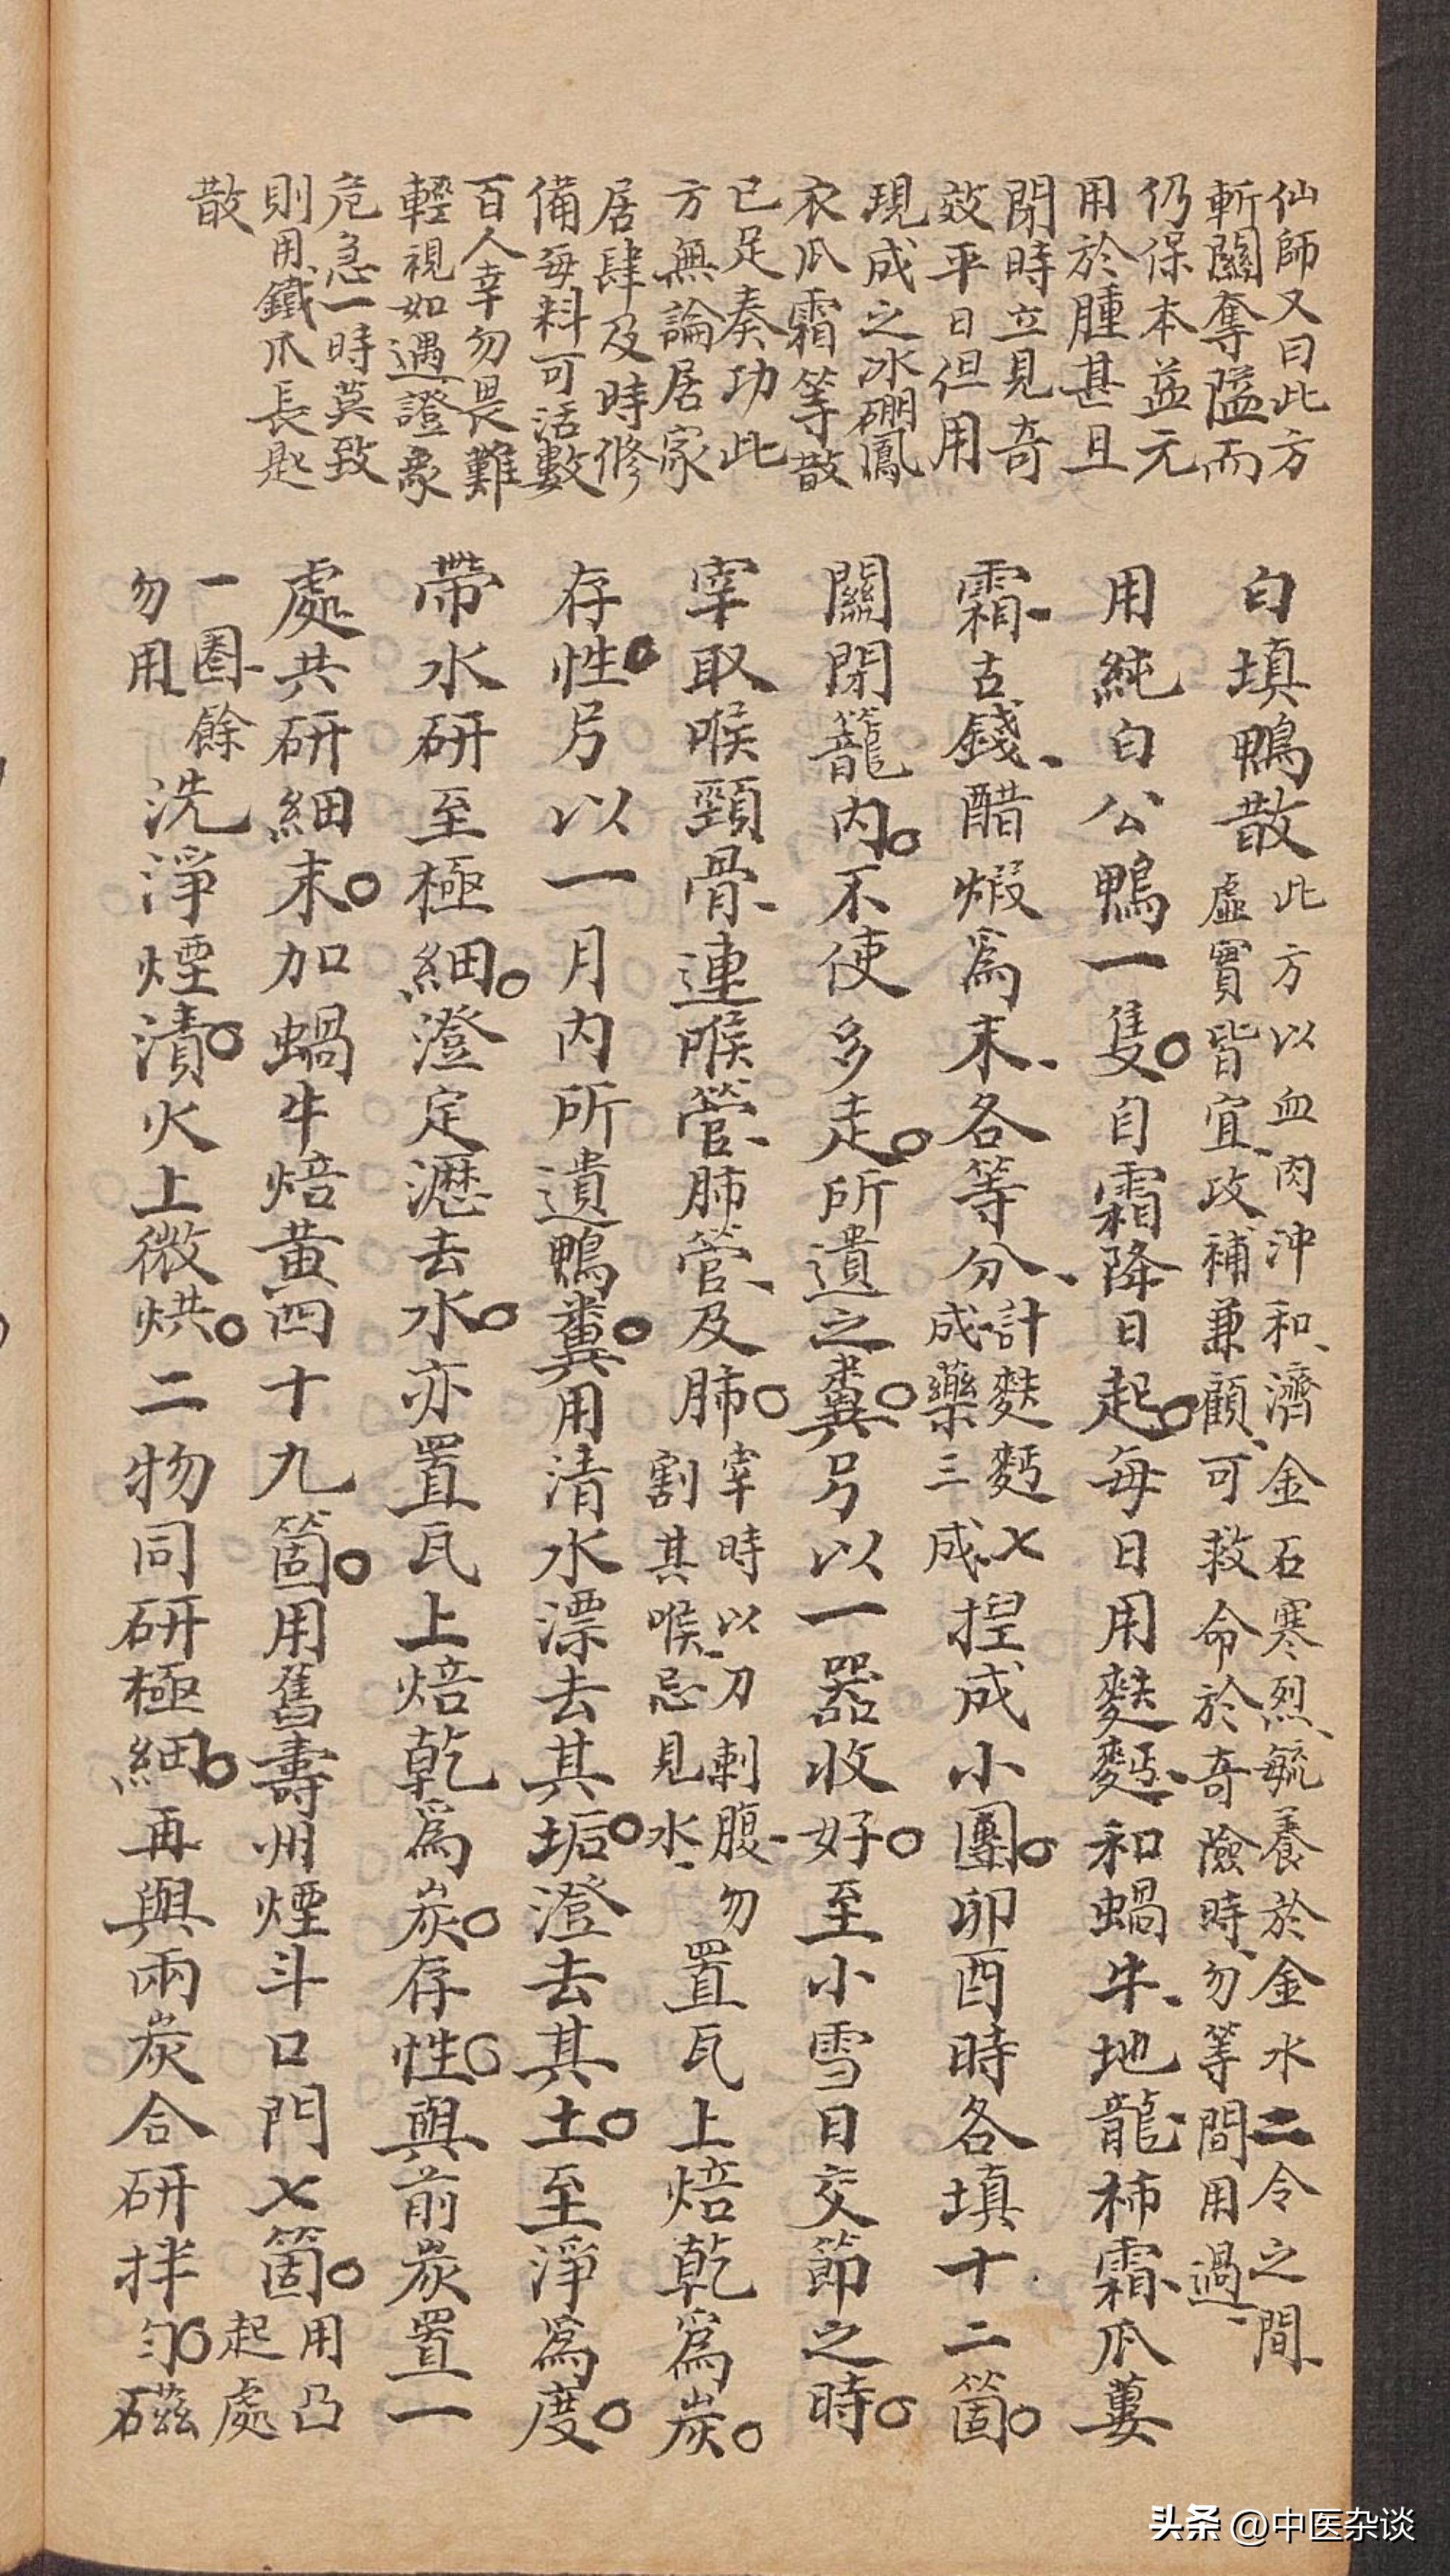 仙師又曰此方
斬關奪隘而
仍保本益元
用於腫甚且
閉時立見奇
效平日但用
現成之冰硼鳳
衣瓜霜等散
已足奏功此
方無論居家
居肆及時修
備每料可活數
百人幸勿畏難
輕視如遇證象
危急一時莫致
則用鐵爪長匙
散
白填鴨散此方以血肉沖和、濟金石寒烈、毓養於金水二令之間、
虛實皆宜、攻補兼顧、可救命於奇險時、勿等間用過、
用純白公鴨一隻。自霜降日起。每日用麩麪、和蝸牛、地龍、柿霜、瓜蔞
霜、古錢、醋煅爲末、各等分、計麩麪七
成、藥三成、捏成小團。卯酉時各填十二箇。
關閉籠內。不使多走。所遺之糞。另以一器收好。至小雪日交節之時。
宰取喉頸骨、連喉管、肺管、及肺。宰時以刀刺腹、勿
割其喉、忌見水、置瓦上焙乾爲炭。
存性。另以一月內所遺鴨糞。用清水漂去其垢。澄去其土。至淨爲度。
帶水研至極細。澄定瀝去水。亦置瓦上焙乾爲炭。存性。與前炭置一
處共研細末。加蝸牛焙黃四十九箇。用舊壽州煙斗口門七箇。用凸
起處
一圈、餘
勿用洗淨煙漬。火上微烘。二物同研極細。再與兩炭合研拌勻。磁
头条 @中医杂谈